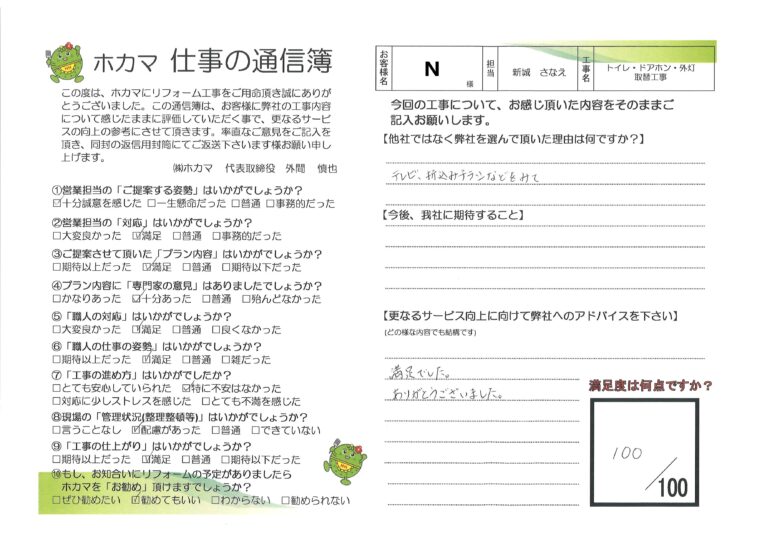 ホカマ 仕事の通信簿
この度は、ホカマにリフォーム工事をご用命頂き誠にありが
とうございました。この通信簿は、お客様に弊社の工事内容
について感じたままに評価していただく事で、更なるサービ
スの向上の参考にさせて頂きます。率直なご意見をご記入を
頂き、同封の返信用封筒にてご返送下さいます様お願い申し
上げます。
㈱ホカマ 代表取締役 外間 慎也
①営業担当の「ご提案する姿勢」はいかがでしょうか？
☑十分誠意を感じた □一生懸命だった □普通 □事務的だった
②営業担当の「対応」はいかがでしょうか？
□大変良かった ☑満足 □普通 □事務的だった
③ご提案させて頂いた「プラン内容」はいかがでしょうか？
□期待以上だった ☑満足 □普通 □期待以下だった
④プラン内容に「専門家の意見」はありましたでしょうか？
□かなりあった ☑十分あった □普通 □殆んどなかった
⑤「職人の対応」はいかがでしょうか？
□大変良かった ☑満足 □普通 □良くなかった
⑥「職人の仕事の姿勢」はいかがでしょうか？
□期待以上だった ☑満足 □普通 □雑だった
⑦「工事の進め方」はいかがでしたか？
□とても安心していられた ☑特に不安はなかった
□対応に少しストレスを感じた □とても不満を感じた
⑧現場の「管理状況(整理整頓等)」はいかがでしょうか？
□言うことなし ☑配慮があった □普通 □できていない
⑨「工事の仕上がり」はいかがでしょうか？
□期待以上だった ☑満足 □普通 □期待以下だった
⑩もし、お知合いにリフォームの予定がありましたら
ホカマを「お勧め」頂けますでしょうか？
□ぜひ勧めたい ☑勧めてもいい □わからない □勧められない
お客様名 N 様 担当 新城 さなえ 工事名 トイレ・ドアホン・外灯
取替工事
今回の工事について、お感じ頂いた内容をそのままご
記入お願いします。
【他社ではなく弊社を選んで頂いた理由は何ですか？】
テレビ、折込みチラシなどをみて
【今後、我社に期待すること】
【更なるサービス向上に向けて弊社へのアドバイスを下さい】
(どの様な内容でも結構です)
満足でした。
ありがとうございました。
満足度は何点ですか？
100
/100